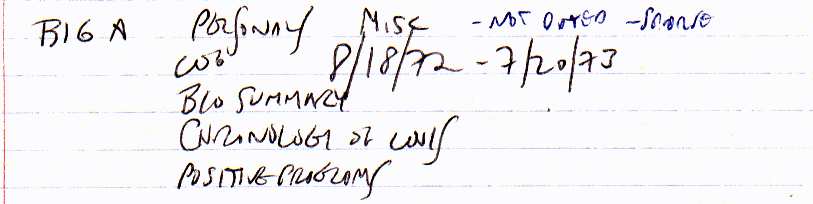 B16 A PERSONAL MISC - NOT DATED - SPARSE
LOG 8/18/72 - 7/20/73
BIO SUMMARY
CHRONOLOGY OF
POSITIVE PROGRAMS